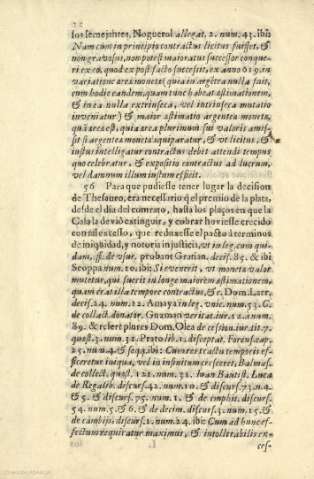 los semejantes, Noguerol allegat. 2. num. 43. ibi:
Nam cum in principio contractus licitus fuisset, &
non gravosus, non potest maioratus successor conque-
ri ex eo, quod ex post facto successit, ex anno 619. in
variatione area monetæ, quia in argētea nulla fuit,
eum hodie eandem, quam tunc habeat æstimationem,
& in ea nulla extrinseca, vel intrinseca mutatio
inveniatur) & maior æstimatio argentea moneta,
quia area est, quia area plurimùm sui valoris amis-
sit si argentea moneta equiparatur, & vt licitus, &
iustus intelligatur contractus debit attendi tempus
quo celebratur, & expositio contractus ad lucrum,
vel damnum illum iustum efficit.
56 Para que pudiesse tener lugar la decision
de Thesauro, era necessario q̃ el premio de la plata,
desde el dia del contrato, hasta los plaços en que la
Casa le devió extinguir, y cobrar huviesse crecido
con tal excesso, que reduxesse el pacto à terminos
de iniquidad, y notoria injusticia, vt in leg. cum qui-
dam, ff. de vsur. probant Gratian. decis. 85. & ibi
Scoppa num. 10. ibi: Si evenerit, vt moneta valor
mutetur, qui fuerit in longe maiorem æstimationem,
quàm erat illa tempore contractus, &c. Dom. Larr.
decis. 24. num. 12. Amaya in leg. vnic. num. 53. C.
de collat. donator. Guzman verit. iur. 12. a num.
89. & refert plures Dom. Olea de cession. iur. tit. 7.
quæst. 3. num. 31. Prato lib. 1. discept. Forens. cap.
25. num. 4. & seqq. ibi: Crevere tractu temporis ef-
feceretur iniqua, vel in infinitum cresceret, Balmas.
de collect. quæst. 122. num. 22. Iuan Bautist. Luca
de Regalib. discurs. 42. num. 10. & discurs. 73. n. 4.
& 5. & discurs. 75. num. 1. & de emphit. discurs.
54. num. 5. & 6. & de decim. discurs. 3. num. 15. &
de cambijs, discurs. 1. num. 24. ibi: Cum ad hunc ef-
fectum requiratur maximus, & intollerabilis ex-
ces-